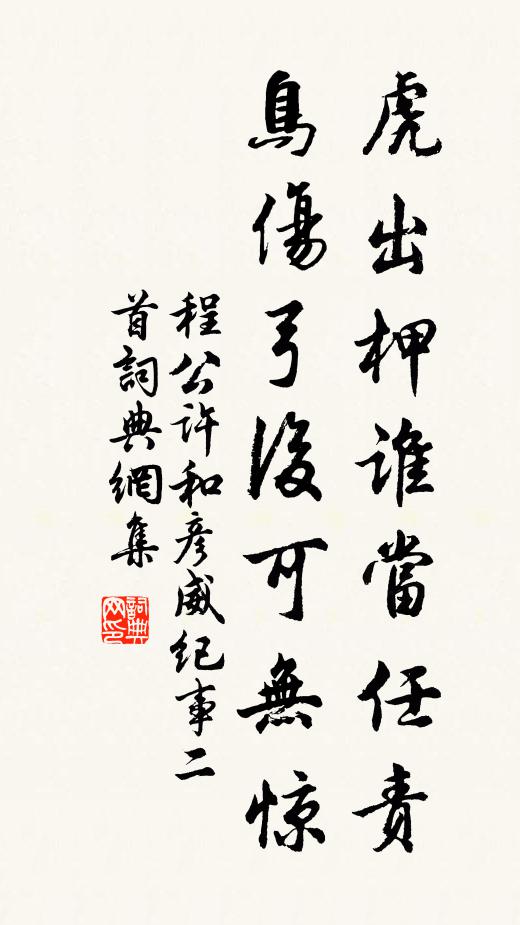 虎出柙誰當任責
鳥傷弓後可無惊
程公許和彦威纪事二
首詞典網集
詞典
网印